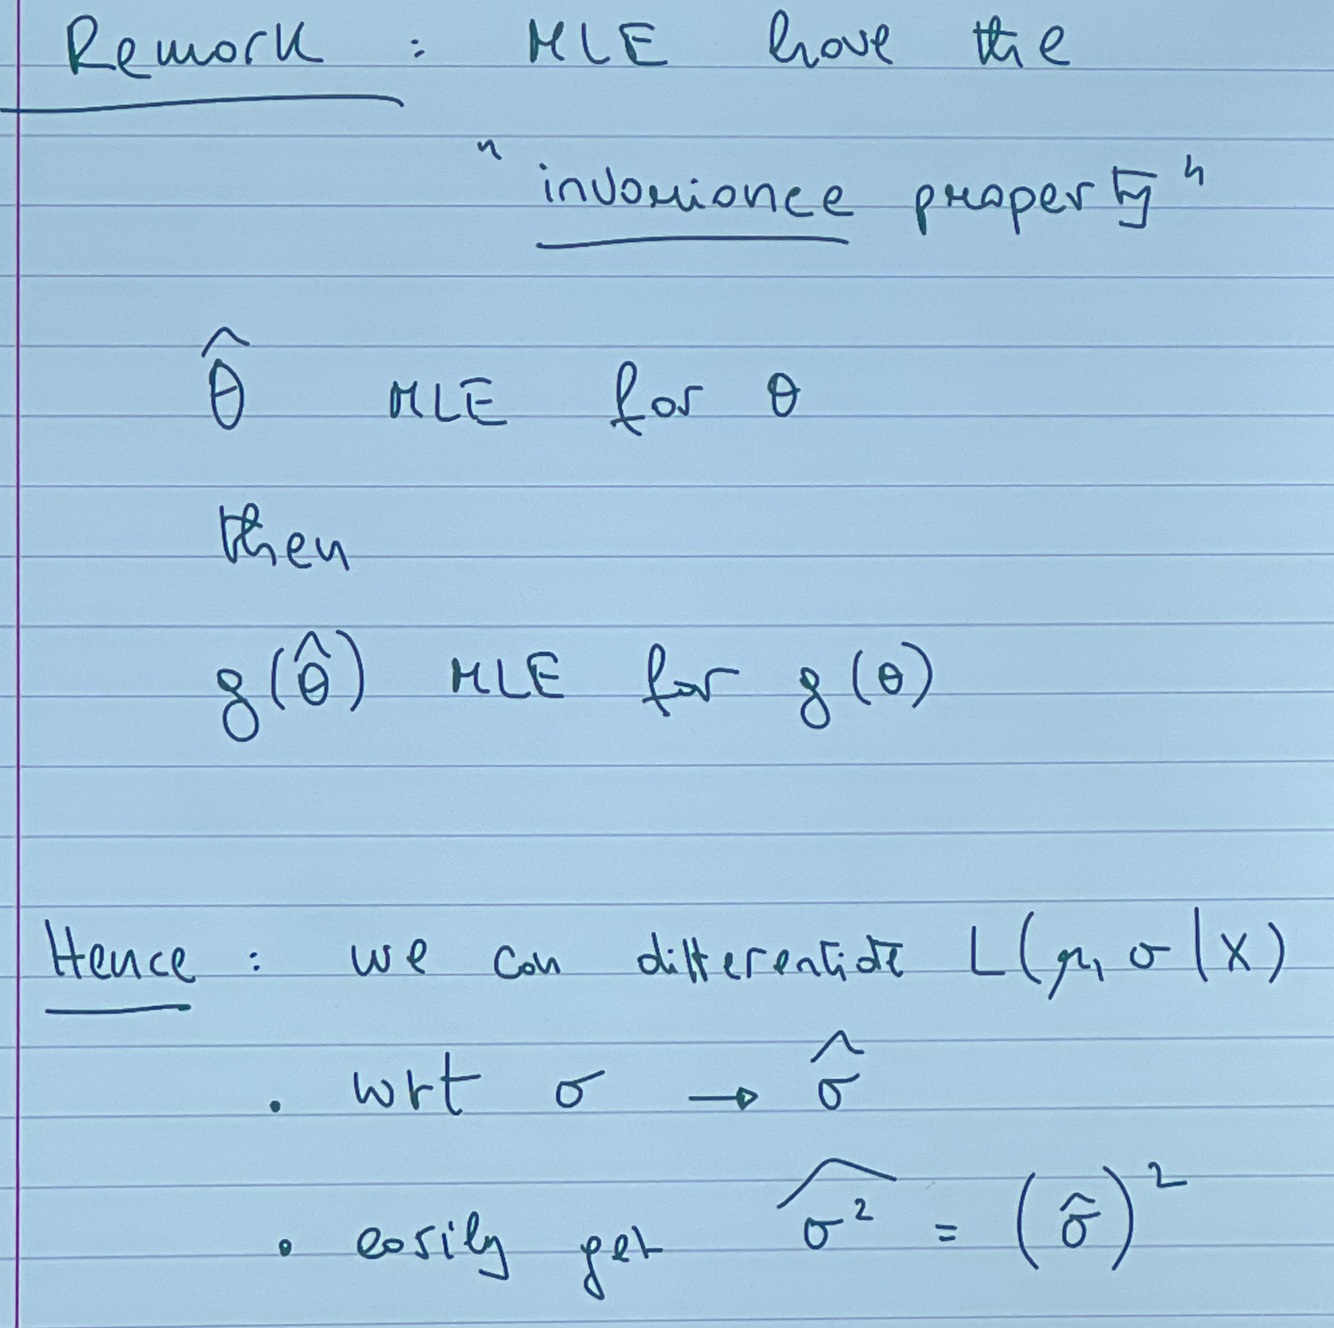 Remark : MLE have the
"invariance property"
θ̂ MLE for θ
then
g(θ̂) MLE for g(θ)
Hence : we can differentiate L(μ, σ | X)
. wrt σ → σ̂
. easily get \widehat{σ²} = (σ̂)²